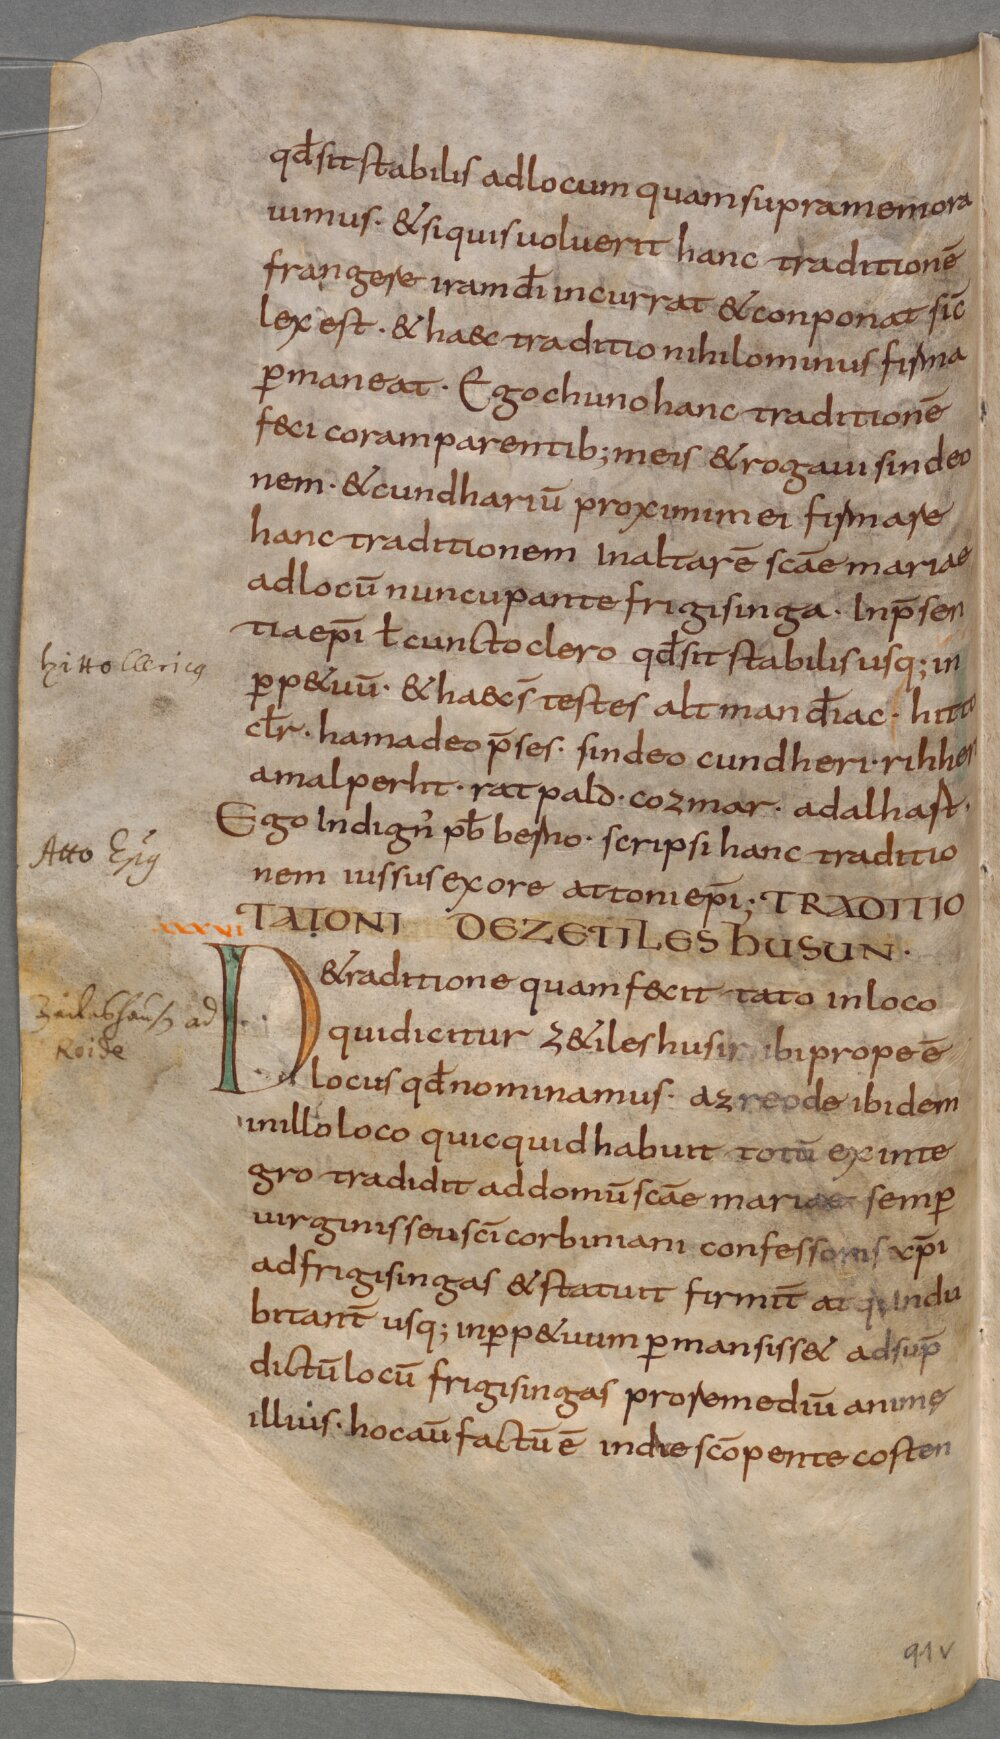 qđ sit stabilis ad locum quam supra memora
uimus· & si quis uoluerit hanc traditionē
frangere iram dī incurrat & conponat sič
lex est· & haec traditio nihilominus firma
ꝑmaneat· Ego chuno hanc traditionē
feci coram parentib; meis & rogaui sindeo
nem· & cundhariū proximi mei firmare
hanc traditionem In altarē scāe mariae
ad locū nuncupante frigisinga· In p̄sen
tia ep̄i ł cuncto clero qđ sit stabilis usq; in
ꝑp&uū· & haec s̄ testes altman điac· hitto
cłr· hamadeo p̄ses· sindeo cundheri· rihheri
amalperht· ratpald· cozmar· adalhast·
hitto Clericg
Ego Indign' pb̄ berno· scripsi hanc traditio
nem iussus ex ore attoni ep̄i; TRADITIO
Atto Epg
xxxvi TATONI DE ZEZILES HUSUN·
D& raditione quam fecit tato in loco
qui dicitur z&ileshusir ibi prope ē
locus qđ nominamus· az reode ibidem
Zeileshausz ad
Roide
in illo loco quicquid habuit totū ex inte
gro tradidit ad domū scāe mariae semꝑ
uirginis seu sc̄i corbiniani confessoris xp̄i
ad frigisingas & statuit firmit̄ atq; Indu
bitant̄ usq; in ꝑp&uum ꝑmansiss& ad sup̄
dictū locū frigisingas pro remediū anime
illius· hoc aū factū ē in die sc̄o pentecosten
91v